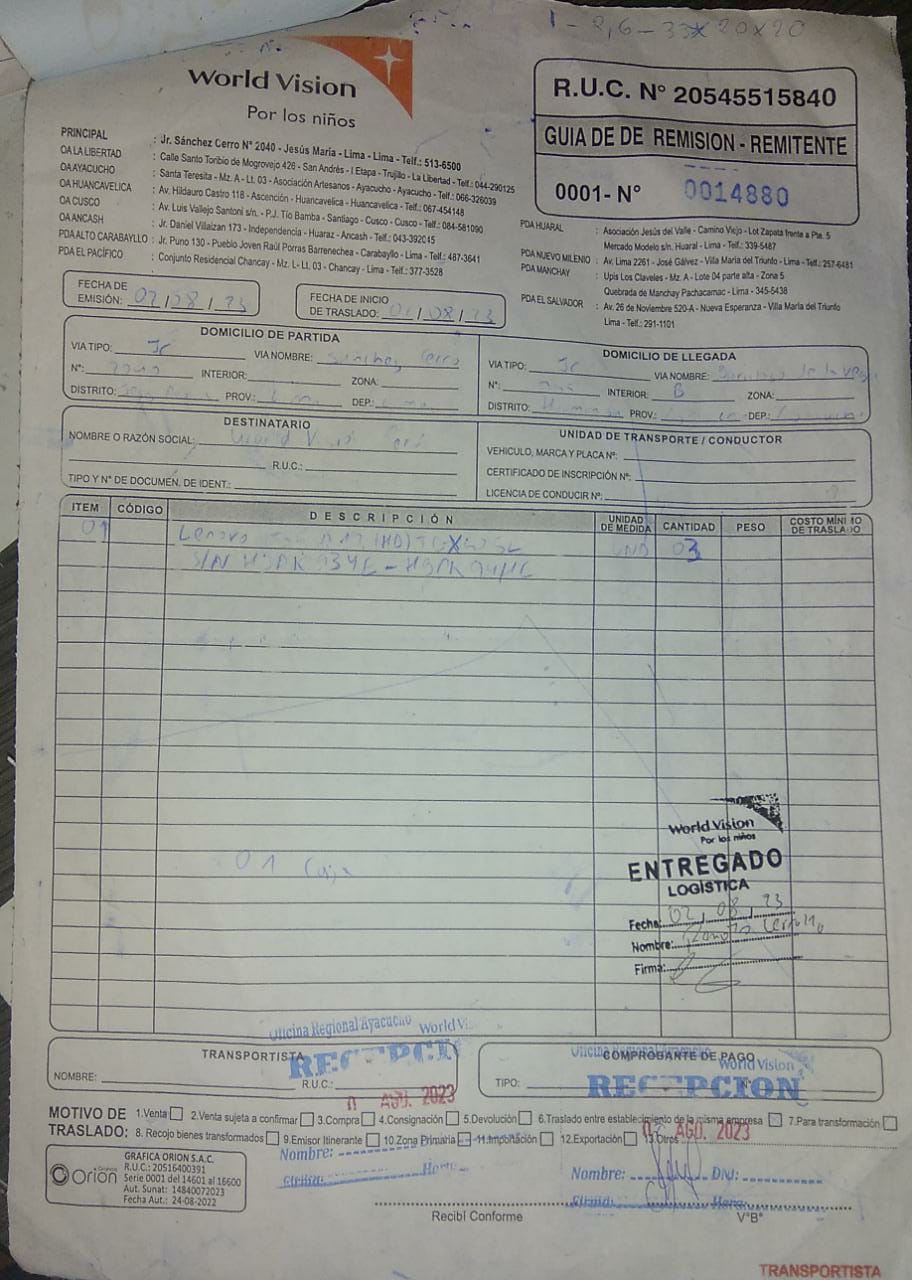 World Vision
Por los niños
R.U.C. N° 20545515840
GUIA DE DE REMISION - REMITENTE
0001- N° 0014880
PRINCIPAL : Jr. Sánchez Cerro N° 2040 - Jesús María - Lima - Lima - Telf.: 513-6500
OA LA LIBERTAD : Calle Santo Toribio de Mogrovejo 426 - San Andrés - I Etapa - Trujillo - La Libertad - Telf.: 044-290125
OA AYACUCHO : Santa Teresita - Mz. A - Lt. 03 - Asociación Artesanos - Ayacucho - Ayacucho - Telf.: 066-326039
OA HUANCAVELICA : Av. Hildauro Castro 118 - Ascención - Huancavelica - Huancavelica - Telf.: 067-454148
OA CUSCO : Av. Luis Vallejo Santoni s/n. - P.J. Tío Bamba - Santiago - Cusco - Cusco - Telf.: 084-581090
OA ANCASH : Jr. Daniel Villaizan 173 - Independencia - Huaraz - Ancash - Telf.: 043-392045
PDA ALTO CARABAYLLO : Jr. Puno 130 - Pueblo Joven Raúl Porras Barrenechea - Carabayllo - Lima - Telf.: 487-3641
PDA EL PACÍFICO : Conjunto Residencial Chancay - Mz. L - Lt. 03 - Chancay - Lima - Telf.: 377-3528
PDA HUARAL : Asociación Jesús del Valle - Camino Viejo - Lot Zapata frente a Pte. 5
Mercado Modelo s/n. Huaral - Lima - Telf.: 339-5487
PDA NUEVO MILENIO : Av. Lima 2261 - José Gálvez - Villa María del Triunfo - Lima - Telf.: 257-6481
PDA MANCHAY : Upis Los Claveles - Mz. A - Lote 04 parte alta - Zona 5
Quebrada de Manchay Pachacamac - Lima - 345-5438
PDA EL SALVADOR : Av. 26 de Noviembre 520-A - Nueva Esperanza - Villa María del Triunfo
Lima - Telf.: 291-1101
FECHA DE EMISIÓN: 02/08/23
FECHA DE INICIO DE TRASLADO: 02/08/23
DOMICILIO DE PARTIDA
VIA TIPO: Jr VIA NOMBRE: Sánchez Cerro
N°: 2040 INTERIOR: ZONA:
DISTRITO: PROV.: Lima DEP.: Lima
DOMICILIO DE LLEGADA
VIA TIPO: Jr VIA NOMBRE: de la Vega
N°: INTERIOR: B ZONA:
DISTRITO: PROV.: DEP.:
DESTINATARIO
NOMBRE O RAZÓN SOCIAL: World Vision Perú
R.U.C.:
TIPO Y N° DE DOCUMEN. DE IDENT.:
UNIDAD DE TRANSPORTE / CONDUCTOR
VEHICULO, MARCA Y PLACA N°:
CERTIFICADO DE INSCRIPCIÓN N°:
LICENCIA DE CONDUCIR N°:
ITEM CÓDIGO DESCRIPCIÓN UNIDAD DE MEDIDA CANTIDAD PESO COSTO MÍNIMO DE TRASLADO
01 Lenovo UND 03
S/N
01 Caja
World Vision
Por los niños
ENTREGADO
LOGÍSTICA
Fecha: 02, 08, 23
Nombre:
Firma:
Oficina Regional Ayacucho World Vi
TRANSPORTISTA
RECEPCI
NOMBRE: R.U.C.:
AGO. 2023
COMPROBANTE DE PAGO
World Vision
RECEPCION
TIPO: N°
AGO. 2023
MOTIVO DE TRASLADO: 1.Venta 2.Venta sujeta a confirmar 3.Compra 4.Consignación 5.Devolución 6.Traslado entre establecimiento de la misma empresa 7.Para transformación
8. Recojo bienes transformados 9.Emisor Itinerante 10.Zona Primaria 11.Importación 12.Exportación 13.Otros
Orión
GRAFICA ORION S.A.C.
R.U.C.: 20516400391
Serie 0001 del 14601 al 16600
Aut. Sunat: 14840072023
Fecha Aut.: 24-08-2022
Nombre:
Firma: Hora:
Nombre: DNI:
Firma: Hora:
Recibí Conforme
V°B°
TRANSPORTISTA